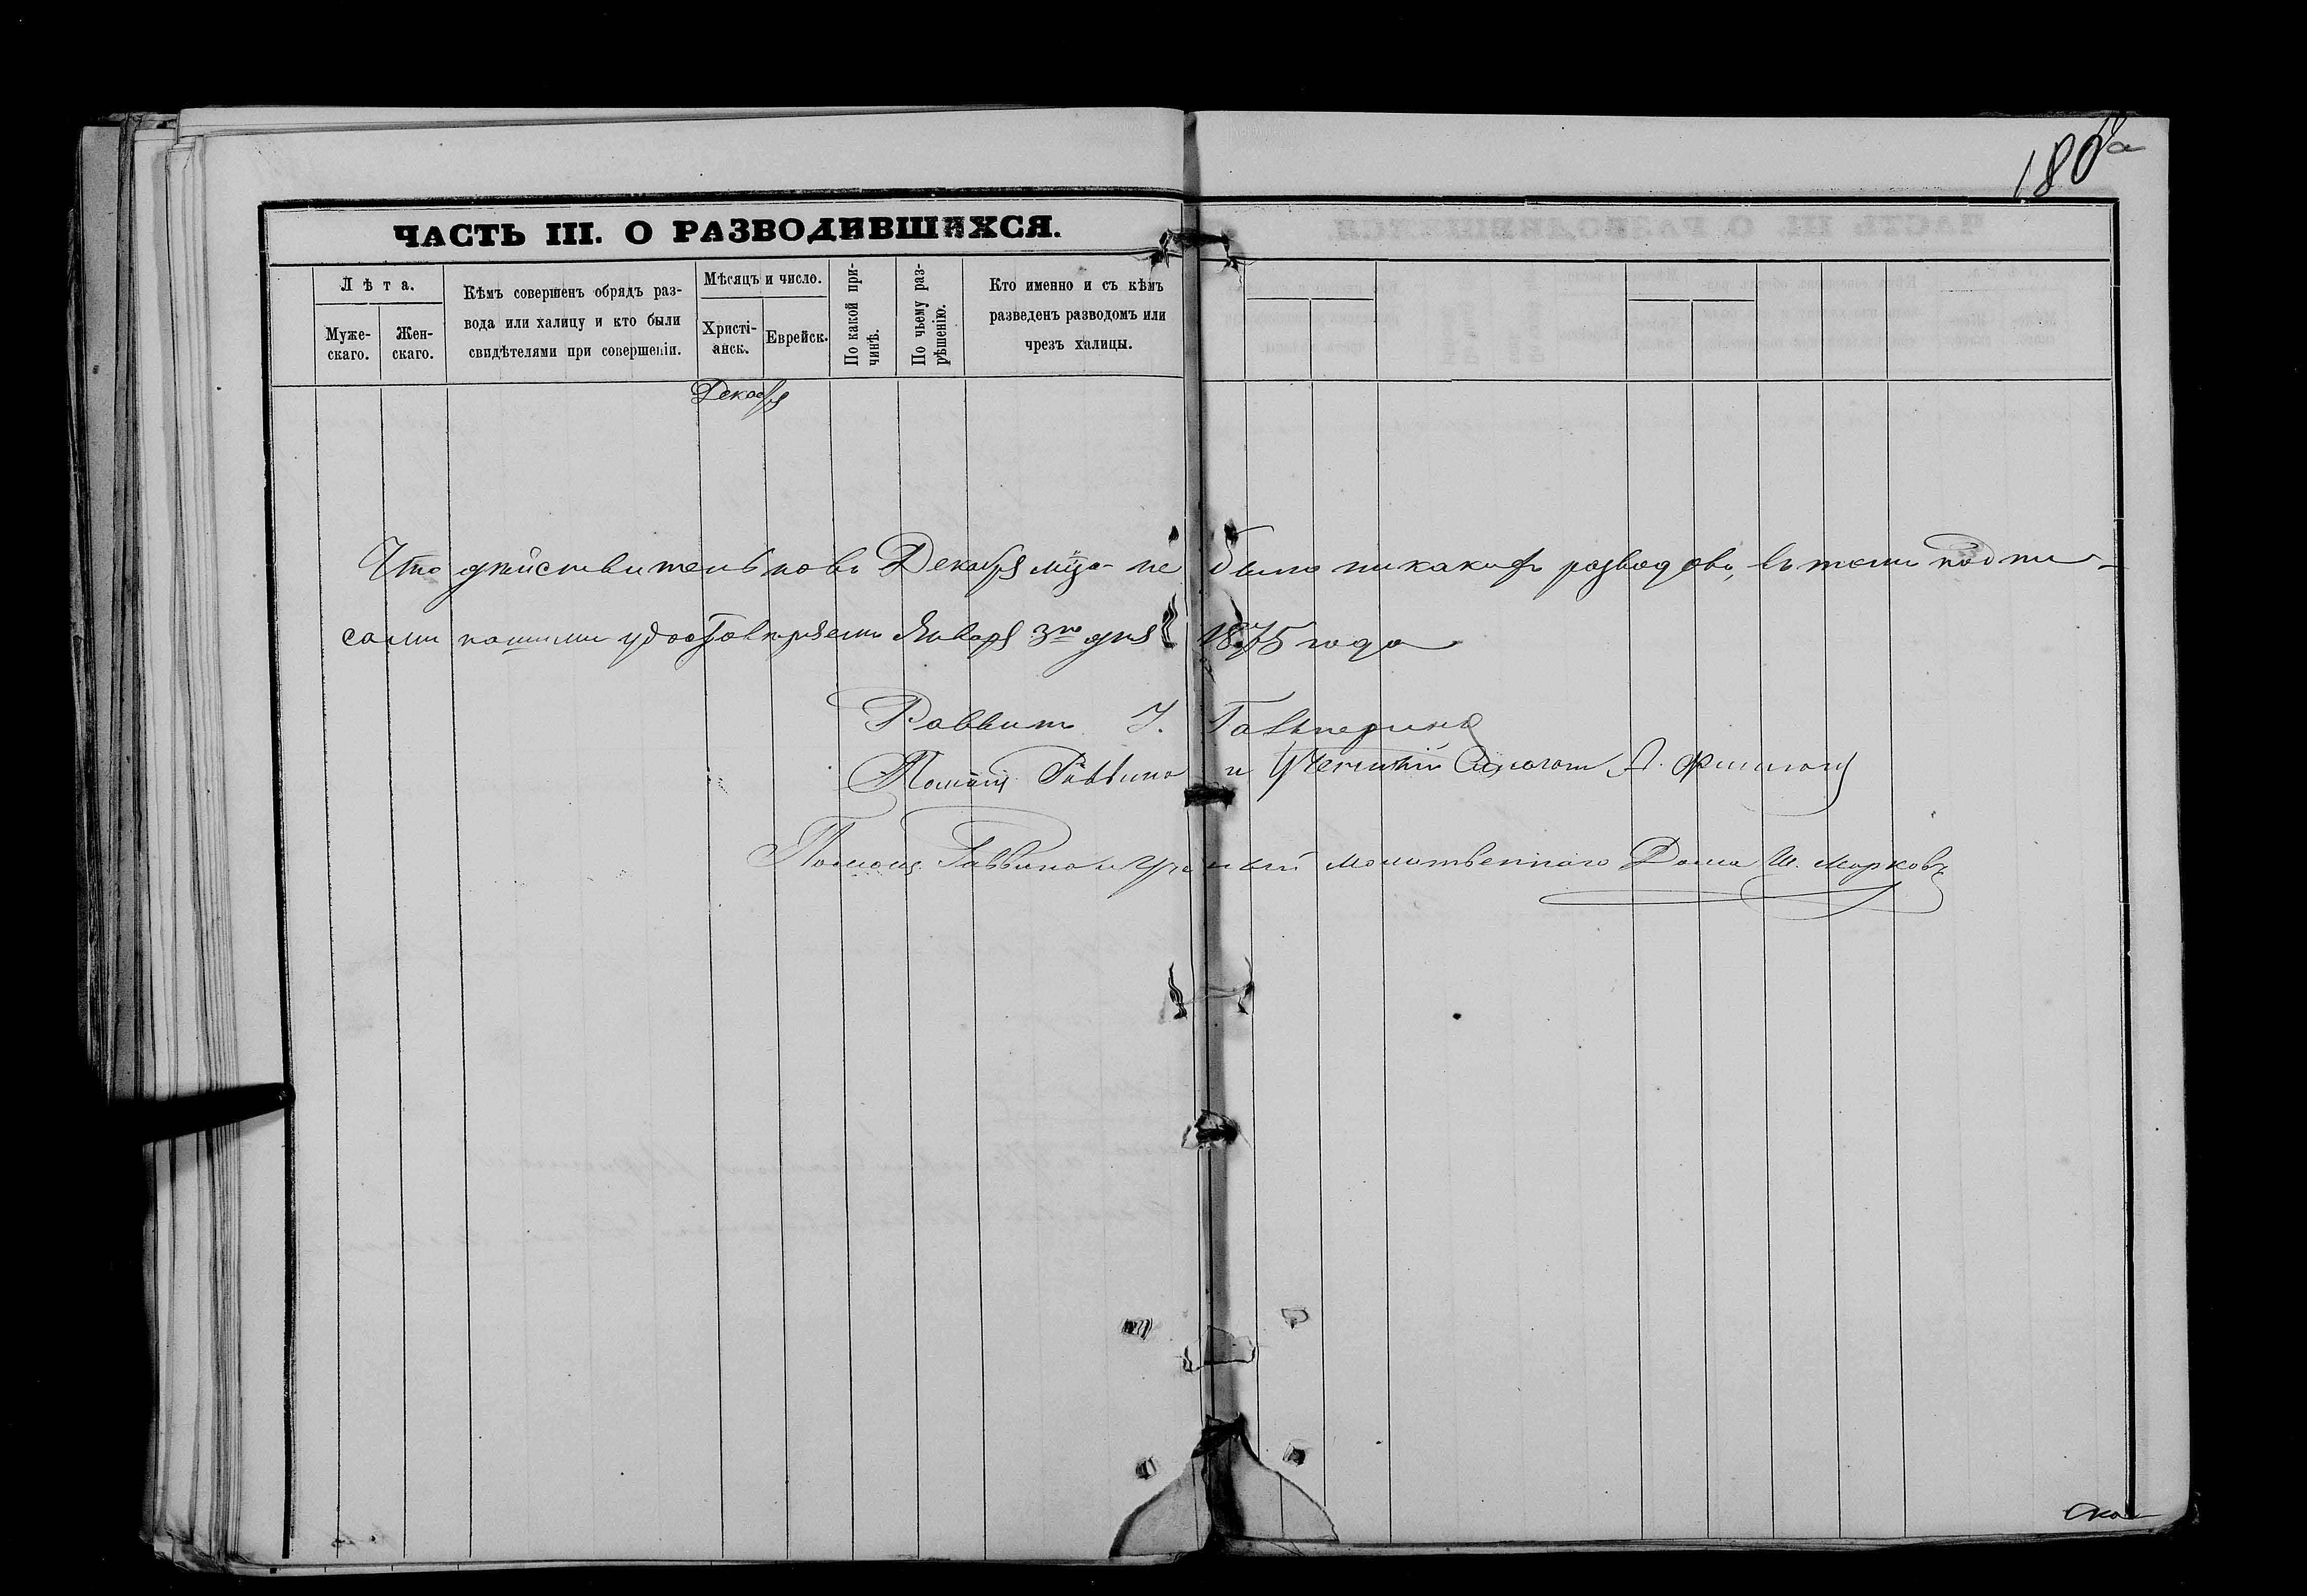 180а
ЧАСТЬ III. О РАЗВОДИВШИХСЯ.
Лѣта.
Муже-
скаго.
Жен-
скаго.
Кѣмъ совершенъ обрядъ раз-
вода или халицу и кто были
свидѣтелями при совершеніи.
Мѣсяцъ и число.
Христі-
анск.
Еврейск.
По какой при-
чинѣ.
По чьему раз-
рѣшенію.
Кто именно и съ кѣмъ
разведенъ разводомъ или
чрезъ халицы.
Декабрь
Что дѣйствительно въ Декабрѣ м-цѣ не было никакихъ разводовъ, въ томъ подпи-
сами нашими удостовѣряемъ Января 3го дня 1875 года
Раввинъ І. Гальперинъ
Помощ. Раввина и Ученый А.
Помощ. Раввина и Ученый молитвеннаго Дома Ш. Марковъ